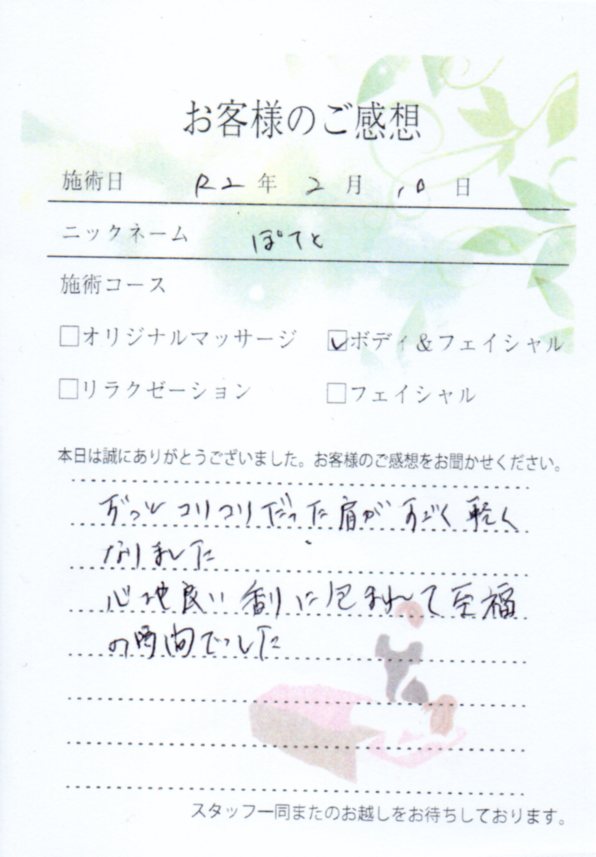 お客様のご感想
施術日 R2年 2月 10日
ニックネーム ぽてと
施術コース
□オリジナルマッサージ ☑ボディ&フェイシャル
□リラクゼーション □フェイシャル
本日は誠にありがとうございました。お客様のご感想をお聞かせください。
ずっと コリコリだった肩が すごく 軽く
なりました
心地良い 香りに包まれて至福
の時間でした
スタッフ一同またのお越しをお待ちしております。